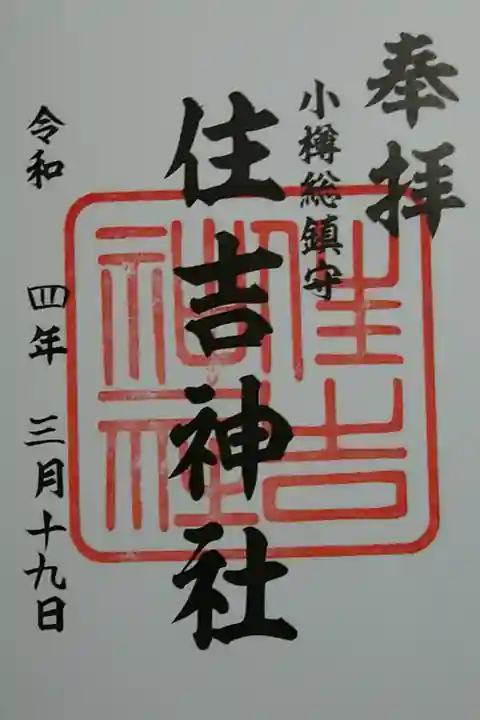 奉拝
小樽総鎮守
住吉神社
令和 四年 三月十九日
住吉神社